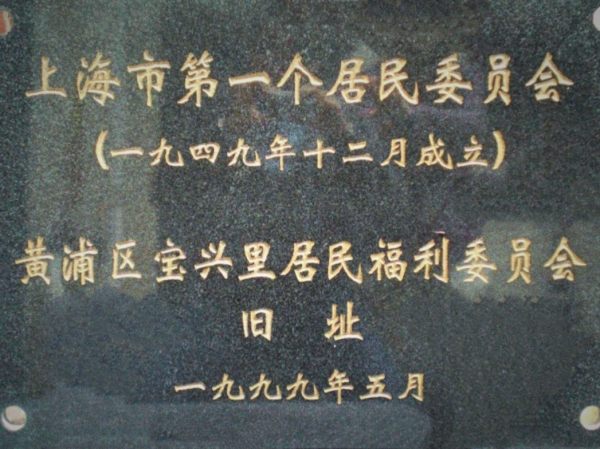 上海市第一个居民委员会
(一九四九年十二月成立)
黄浦区宝兴里居民福利委员会
旧 址
一九九九年五月